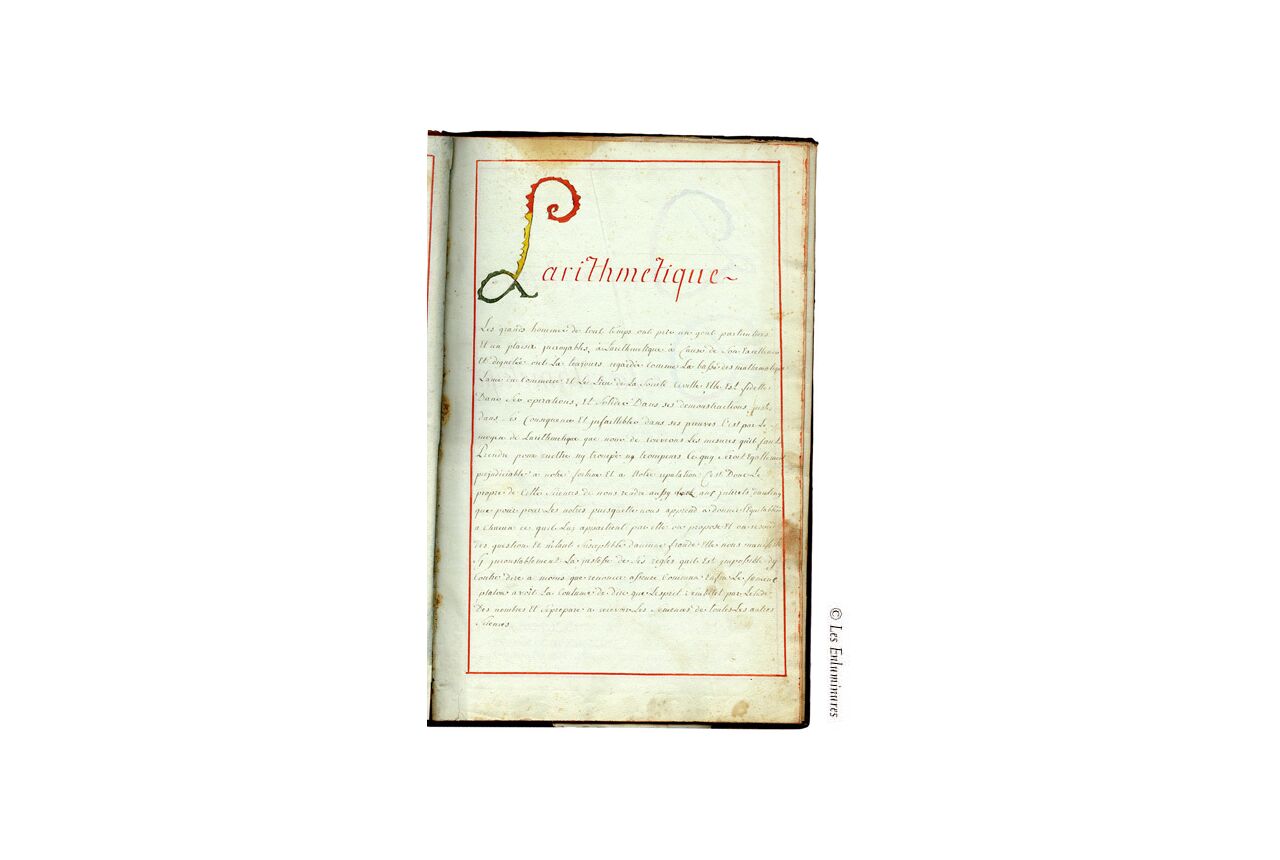 Larithmetique~
Les grands homme de tout temps ont pris un gout particuliers
Et un plaisir incroyables, a Larithmetique a Cause de Son Excellence
Et dignetée ont La toujours regardée Comme La basse des mathematique
Lame du Commerce Et Le Lien de La Societé Civille, Elle Est fidelle
Dans Ses operations, Et Solides Dans ses demonstructions, juste
dans Ses Consequence Et jnfaillibles dans ses preuves C'est par Le
moyen de Larithmetique que nous de couvrons Les mesures qu'il faut
Prendre pour n'estre ny trompé ny trompeurs Ce quy Seroit Egallement
prejudiciable a notre fortune Et a Notre reputation C'est Donc Le
propre de Cette Sciences de nous rendre aussy aux jnterets dautruy
que pour pour Les notres puisquelle nous apprend a donner
a Chacun ce quil Luy appartient par elle on propose Et on resout
des question Et n'étant Susceptible daucune fraude Elle nous manifeste
Sy La justesse de Ses regles quil Est jmpossible dy
Contre dire a moins que renoncer Commun Enfin Le fameux
platon avoit La Coutume de dire que Lesprit par Letude
Des nombres Et Seprepare a recevoir Les Semences de toutes Les autres
Sciences
© Les Enluminures